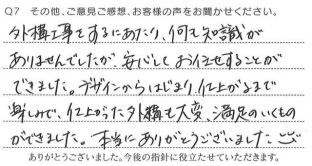 Q7 その他、ご意見ご感想、お客様の声をお聞かせください。
外構工事をするにあたり、何も知識が
ありませんでしたが、安心しておまかせすることが
できました。デザインからはじまり、仕上がるまで
楽しみで、仕上がった外構も大変、満足のいくもの
ができました。本当にありがとうございました。
ありがとうございました。今後の指針に役立たせていただきます。